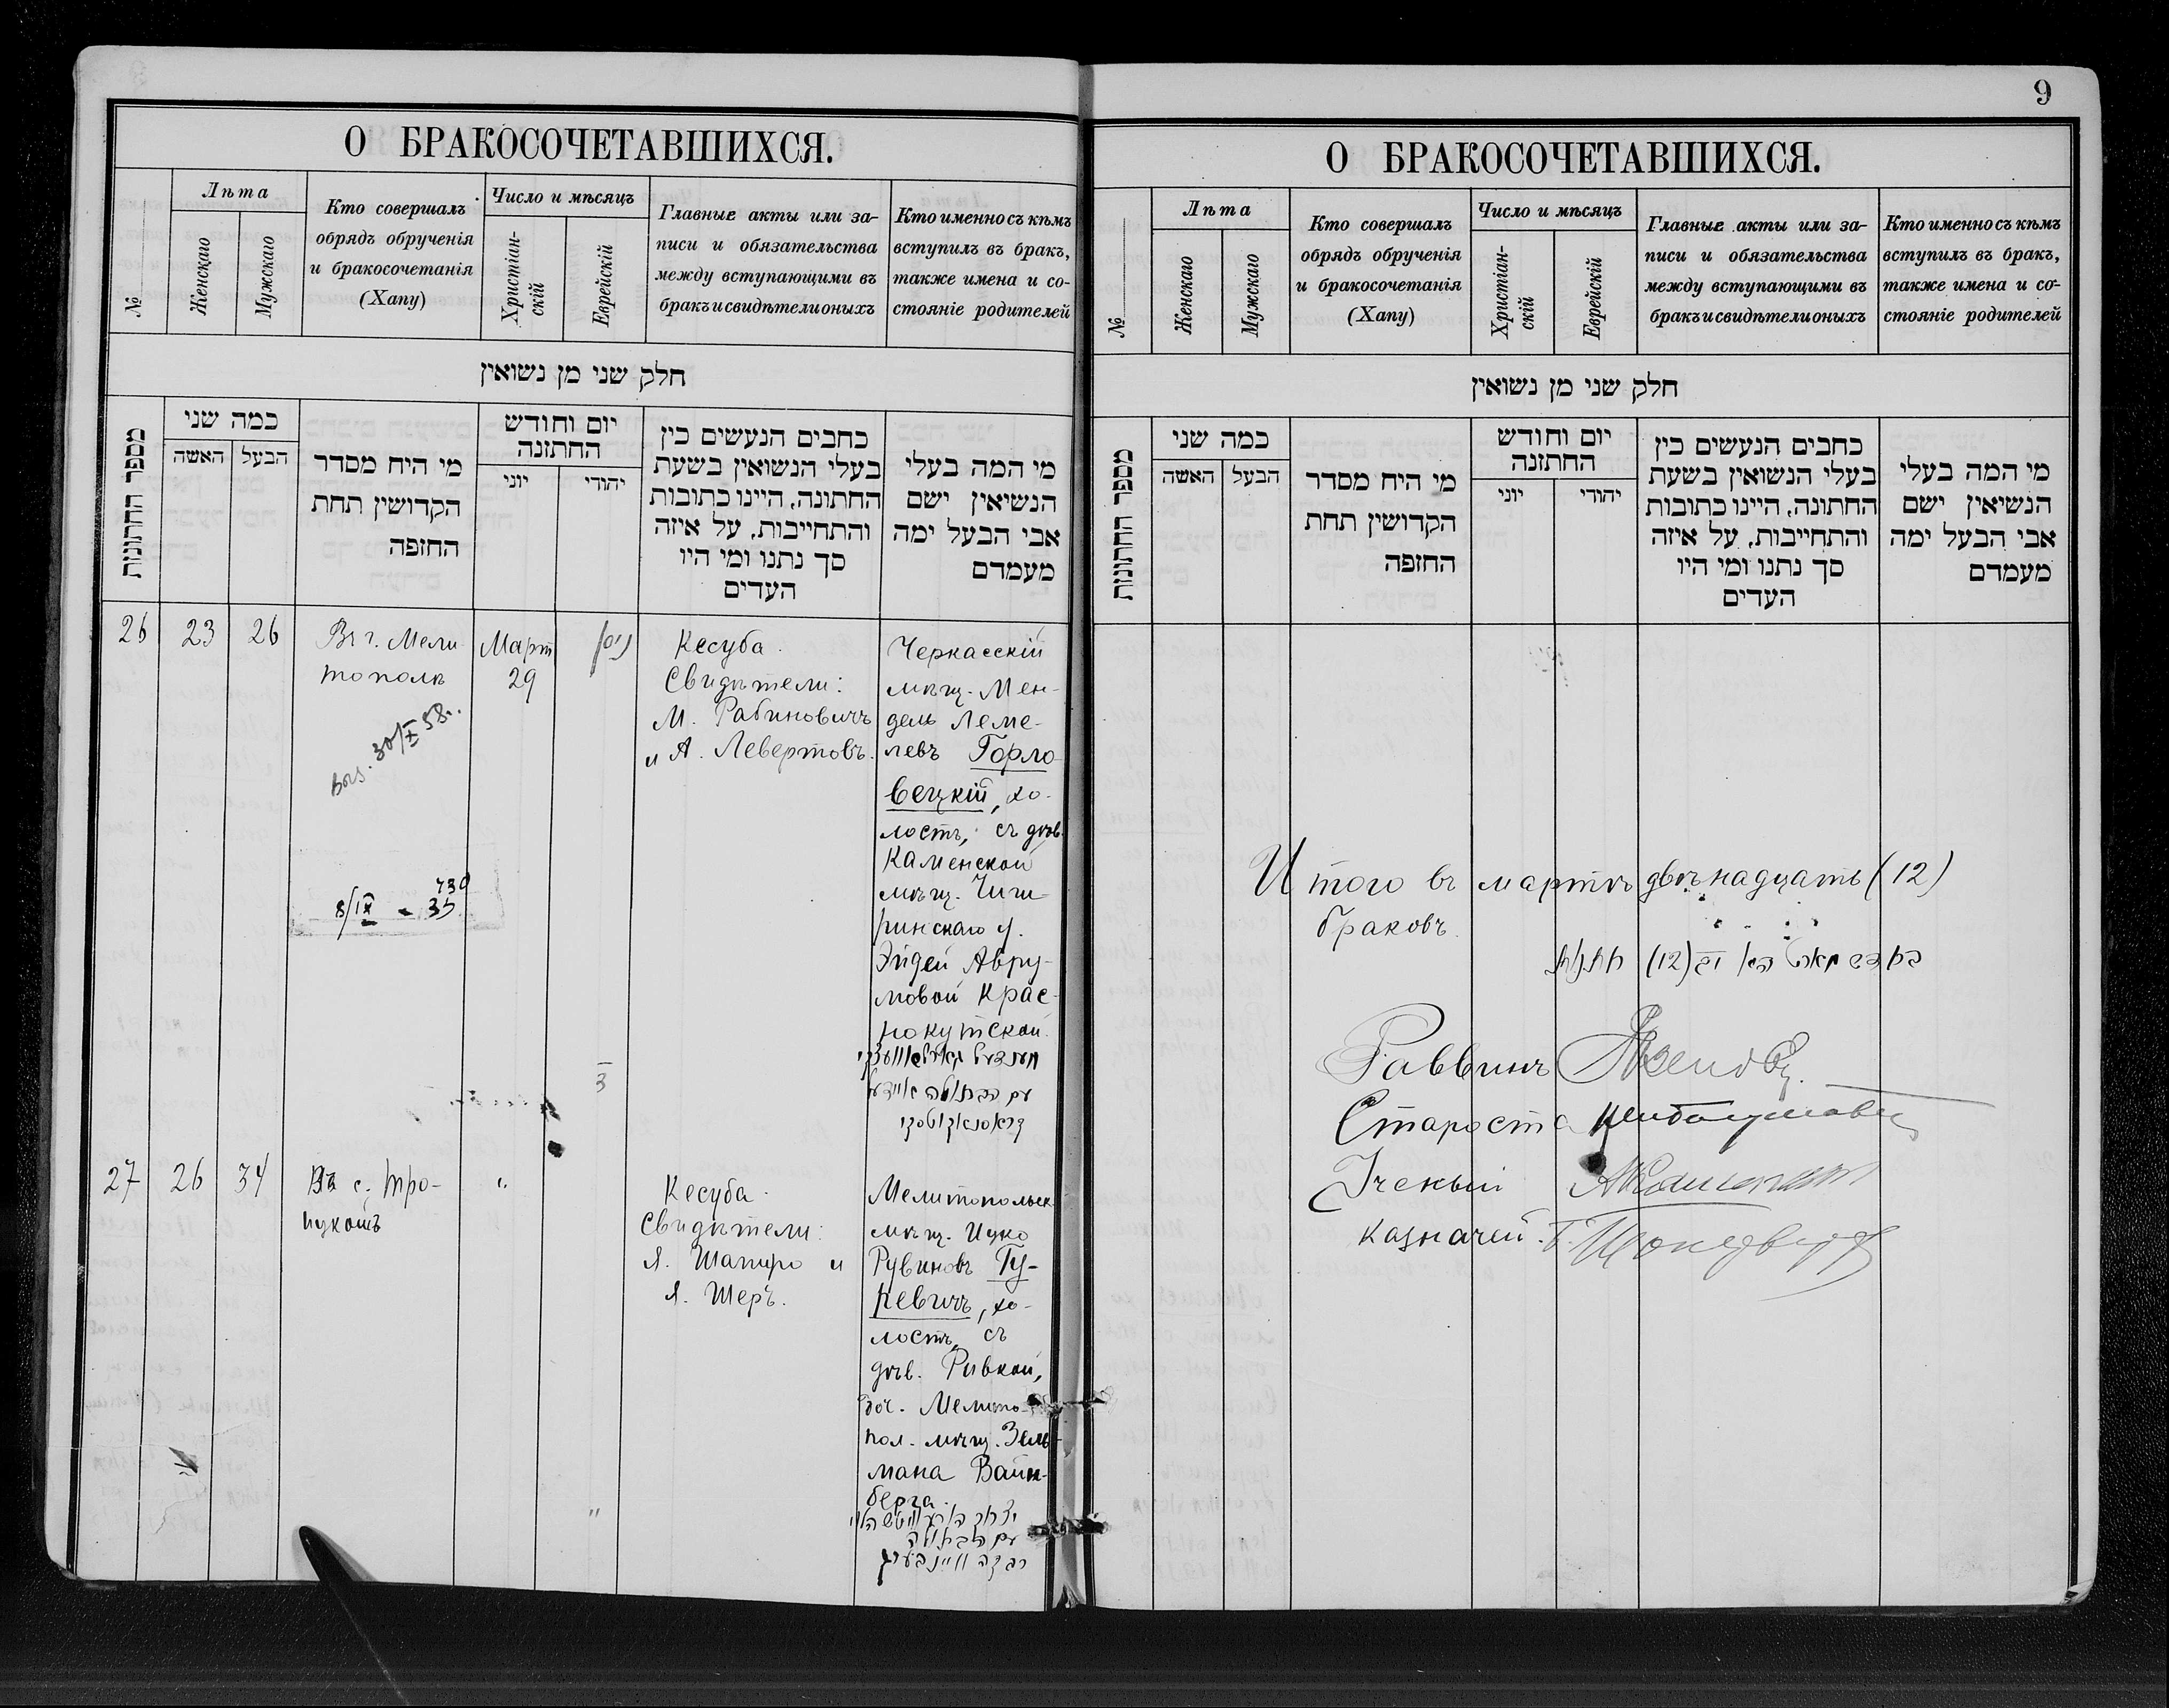 О БРАКОСОЧЕТАВШИХСЯ.
№
Лѣта
Женскаго
Мужскаго
Кто совершалъ
обрядъ обрученія
и бракосочетанія
(Хапу)
Число и мѣсяцъ
Христіан-
скій
Еврейскій
Главные акты или за-
писи и обязательства
между вступающими въ
бракъ и свидѣтели оныхъ
Кто именно съ кѣмъ
вступилъ въ бракъ,
также имена и со-
стояніе родителей
חלק שני מן נשואין
מספר החתונות
כמה שני
האשה
הבעל
מי היח מסדר
הקדושין תחת
החופה
יום וחודש
החתונה
יוני
יהודי
כתבים הנעשים כין
בעלי הנשואין בשעת
החתונה, היינו כתובות
והתחייבות, על איזה
סך נתנו ומי היו
העדים
מי המה בעלי
הנשיאין ישם
אבי הבעל ימה
מעמדם
26
23
26
Въ г. Мели
тополѣ
30/X 58.
8/IX - 35
739
Март
29
ניסן
3
Кесуба.
Свидѣтели:
М. Рабиновичъ
и А. Левертовъ.
Черкасскій
мѣщ. Мен-
дель Леме-
левъ Горло
вецкій, хо-
лостъ, съ дѣв.
Каменской
мѣщ. Чиги-
ринскаго у.
Эйдей Авру-
мовой Крас-
нокутской.
מענדעל גארלאוועצקי
עם הבתולה איידעל
קראסנאקוטסקי
27
26
34
Въ с. Тро-
ицкомъ
"
"
Кесуба.
Свидѣтели:
Я. Шапиро и
Я. Шеръ.
Мелитопольск.
мѣщ. Ицко
Рувиновъ Гу-
ревичъ, хо-
лостъ, съ
дѣв. Ривкой,
доч. Мелито-
пол. мѣщ. Зель-
мана Вайн-
берга.
יצחק הורעוויטש הלוי
עם הבתולה
רבקה וויינבערג
9
О БРАКОСОЧЕТАВШИХСЯ.
№
Лѣта
Женскаго
Мужскаго
Кто совершалъ
обрядъ обрученія
и бракосочетанія
(Хапу)
Число и мѣсяцъ
Христіан-
скій
Еврейскій
Главные акты или за-
писи и обязательства
между вступающими въ
бракъ и свидѣтели оныхъ
Кто именно съ кѣмъ
вступилъ въ бракъ,
также имена и со-
стояніе родителей
חלק שני מן נשואין
מספר החתונות
כמה שני
האשה
הבעל
מי היח מסדר
הקדושין תחת
החופה
יום וחודש
החתונה
יוני
יהודי
כתבים הנעשים כין
בעלי הנשואין בשעת
החתונה, היינו כתובות
והתחייבות, על איזה
סך נתנו ומי היו
העדים
מי המה בעלי
הנשיאין ישם
אבי הבעל ימה
מעמדם
Итого въ мартѣ двѣнадцать (12)
браковъ.
בחדש מארט היו יב (12) חתונות
Раввинъ
Староста
Ученый
Казначей